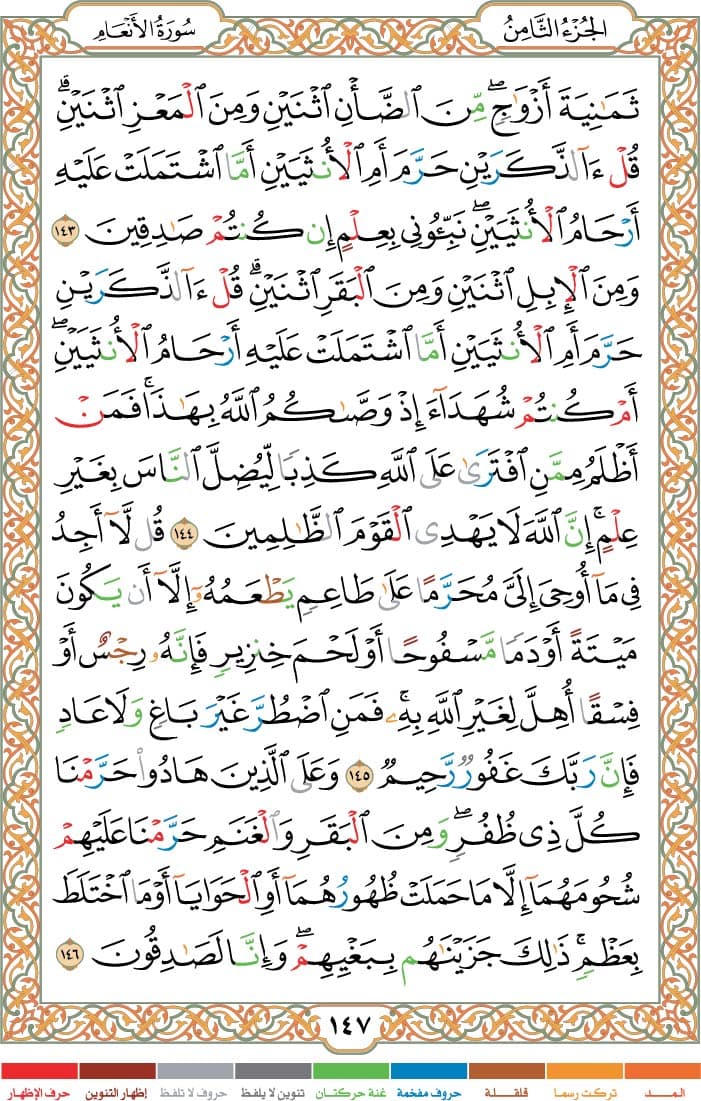 الجزء الثامن
سورة الأنعام
ثَمَٰنِيَةَ أَزْوَٰجٍۖ مِّنَ ٱلضَّأْنِ ٱثْنَيْنِ وَمِنَ ٱلْمَعْزِ ٱثْنَيْنِۗ
قُلْ ءَآلذَّكَرَيْنِ حَرَّمَ أَمِ ٱلْأُنثَيَيْنِ أَمَّا ٱشْتَمَلَتْ عَلَيْهِ
أَرْحَامُ ٱلْأُنثَيَيْنِۖ نَبِّـُٔونِى بِعِلْمٍ إِن كُنتُمْ صَٰدِقِينَ ١٤٣
وَمِنَ ٱلْإِبِلِ ٱثْنَيْنِ وَمِنَ ٱلْبَقَرِ ٱثْنَيْنِۗ قُلْ ءَآلذَّكَرَيْنِ
حَرَّمَ أَمِ ٱلْأُنثَيَيْنِ أَمَّا ٱشْتَمَلَتْ عَلَيْهِ أَرْحَامُ ٱلْأُنثَيَيْنِۖ
أَمْ كُنتُمْ شُهَدَآءَ إِذْ وَصَّىٰكُمُ ٱللَّهُ بِهَٰذَاۚ فَمَنْ
أَظْلَمُ مِمَّنِ ٱفْتَرَىٰ عَلَى ٱللَّهِ كَذِبًا لِّيُضِلَّ ٱلنَّاسَ بِغَيْرِ
عِلْمٍۚ إِنَّ ٱللَّهَ لَا يَهْدِى ٱلْقَوْمَ ٱلظَّٰلِمِينَ ١٤٤ قُل لَّآ أَجِدُ
فِى مَآ أُوحِىَ إِلَىَّ مُحَرَّمًا عَلَىٰ طَاعِمٍ يَطْعَمُهُۥٓ إِلَّآ أَن يَكُونَ
مَيْتَةً أَوْ دَمًا مَّسْفُوحًا أَوْ لَحْمَ خِنزِيرٍ فَإِنَّهُۥ رِجْسٌ أَوْ
فِسْقًا أُهِلَّ لِغَيْرِ ٱللَّهِ بِهِۦۚ فَمَنِ ٱضْطُرَّ غَيْرَ بَاغٍ وَلَا عَادٍ
فَإِنَّ رَبَّكَ غَفُورٌ رَّحِيمٌ ١٤٥ وَعَلَى ٱلَّذِينَ هَادُوا۟ حَرَّمْنَا
كُلَّ ذِى ظُفُرٍۖ وَمِنَ ٱلْبَقَرِ وَٱلْغَنَمِ حَرَّمْنَا عَلَيْهِمْ
شُحُومَهُمَآ إِلَّا مَا حَمَلَتْ ظُهُورُهُمَآ أَوِ ٱلْحَوَايَآ أَوْ مَا ٱخْتَلَطَ
بِعَظْمٍۚ ذَٰلِكَ جَزَيْنَٰهُم بِبَغْيِهِمْۖ وَإِنَّا لَصَٰدِقُونَ ١٤٦
١٤٧
المــد تركت رسما قلقـلة حروف مفخمة غنة حركتان تنوين لا يلفظ حروف لا تلفظ إظهار التنوين حرف الإظهار